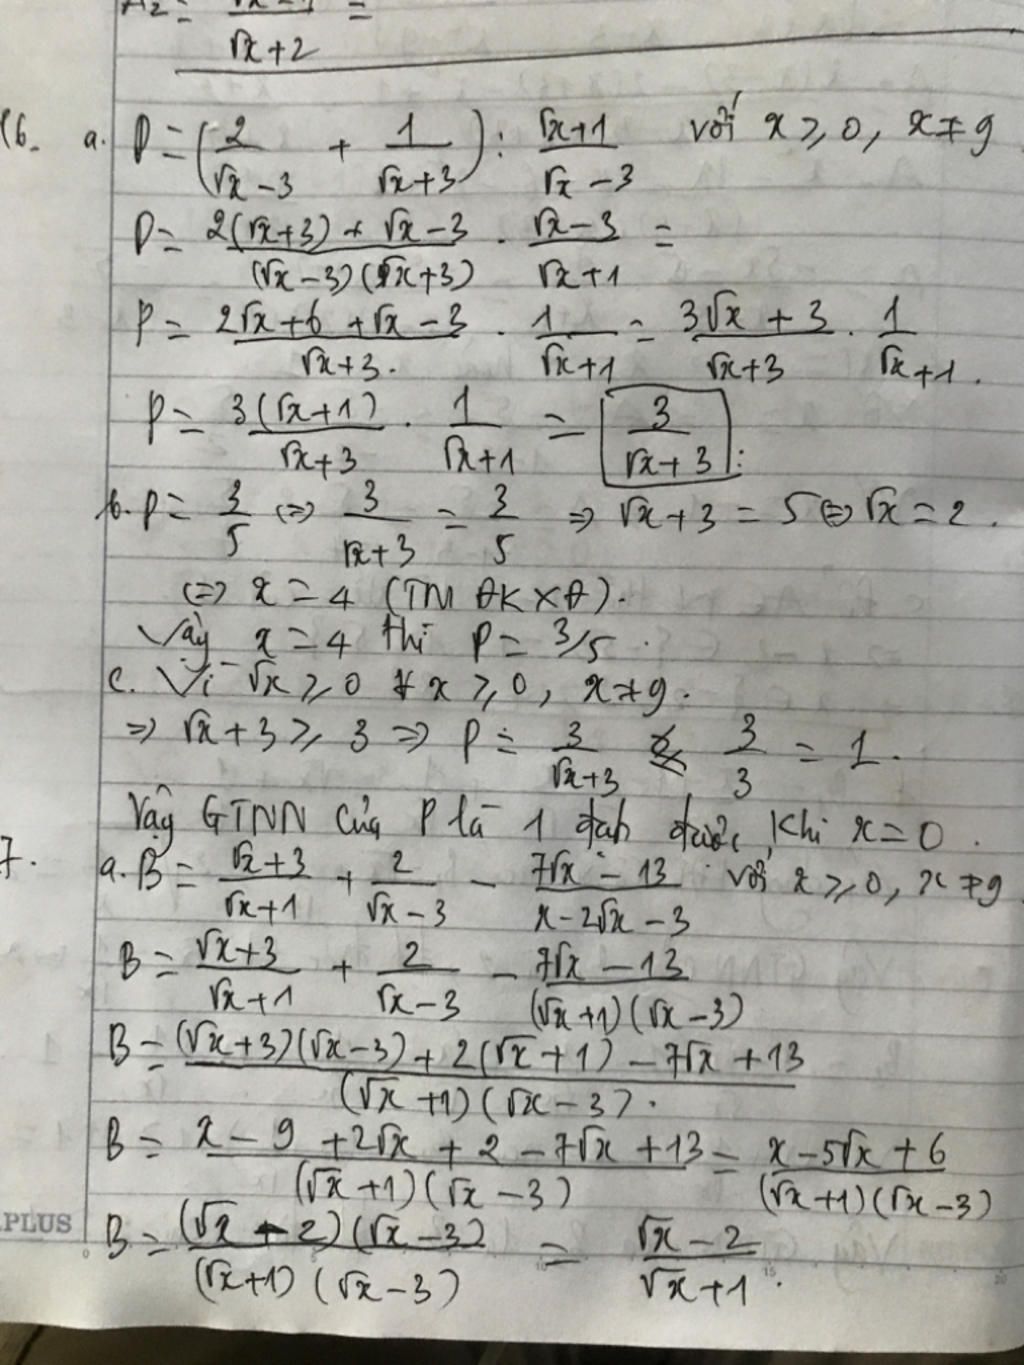 A₂ = (√x-1)/(√x+2) =
16. a. P = (2/(√x-3) + 1/(√x+3)) : (√x+1)/(√x-3) với x ≥ 0, x ≠ 9
P = (2(√x+3) + √x-3)/((√x-3)(√x+3)) . (√x-3)/(√x+1) =
P = (2√x+6+√x-3)/(√x+3) . 1/(√x+1) = (3√x+3)/(√x+3) . 1/(√x+1).
P = 3(√x+1)/(√x+3) . 1/(√x+1) = 3/(√x+3) :
b. P = 3/5 ⇔ 3/(√x+3) = 3/5 ⇒ √x+3 = 5 ⇔ √x = 2.
⇔ x = 4 (TM ĐKXĐ).
Vậy x = 4 thì P = 3/5.
c. Vì √x ≥ 0 ∀ x ≥ 0, x ≠ 9.
⇒ √x+3 ≥ 3 ⇒ P = 3/(√x+3) ≤ 3/3 = 1.
Vậy GTNN của P là 1 đạt được khi x = 0.
7. a. B = (√x+3)/(√x+1) + 2/(√x-3) - (7√x-13)/(x-2√x-3) với x ≥ 0, x ≠ 9
B = (√x+3)/(√x+1) + 2/(√x-3) - (7√x-13)/((√x+1)(√x-3))
B = ((√x+3)(√x-3) + 2(√x+1) - 7√x+13)/((√x+1)(√x-3)).
B = (x-9+2√x+2-7√x+13)/((√x+1)(√x-3)) = (x-5√x+6)/((√x+1)(√x-3))
B = ((√x-2)(√x-3))/((√x+1)(√x-3)) = (√x-2)/(√x+1).
PLUS